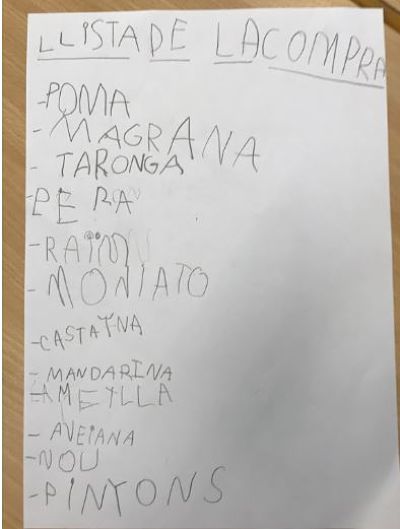 LLISTA DE LA COMPRA
-POMA
- MAGRANA
- TARONGA
-PERA
-RAÏM
-MONIATO
-CASTAYNA
- MANDARINA
-AMETLLA
- AVEIANA
-NOU
-PINYONS